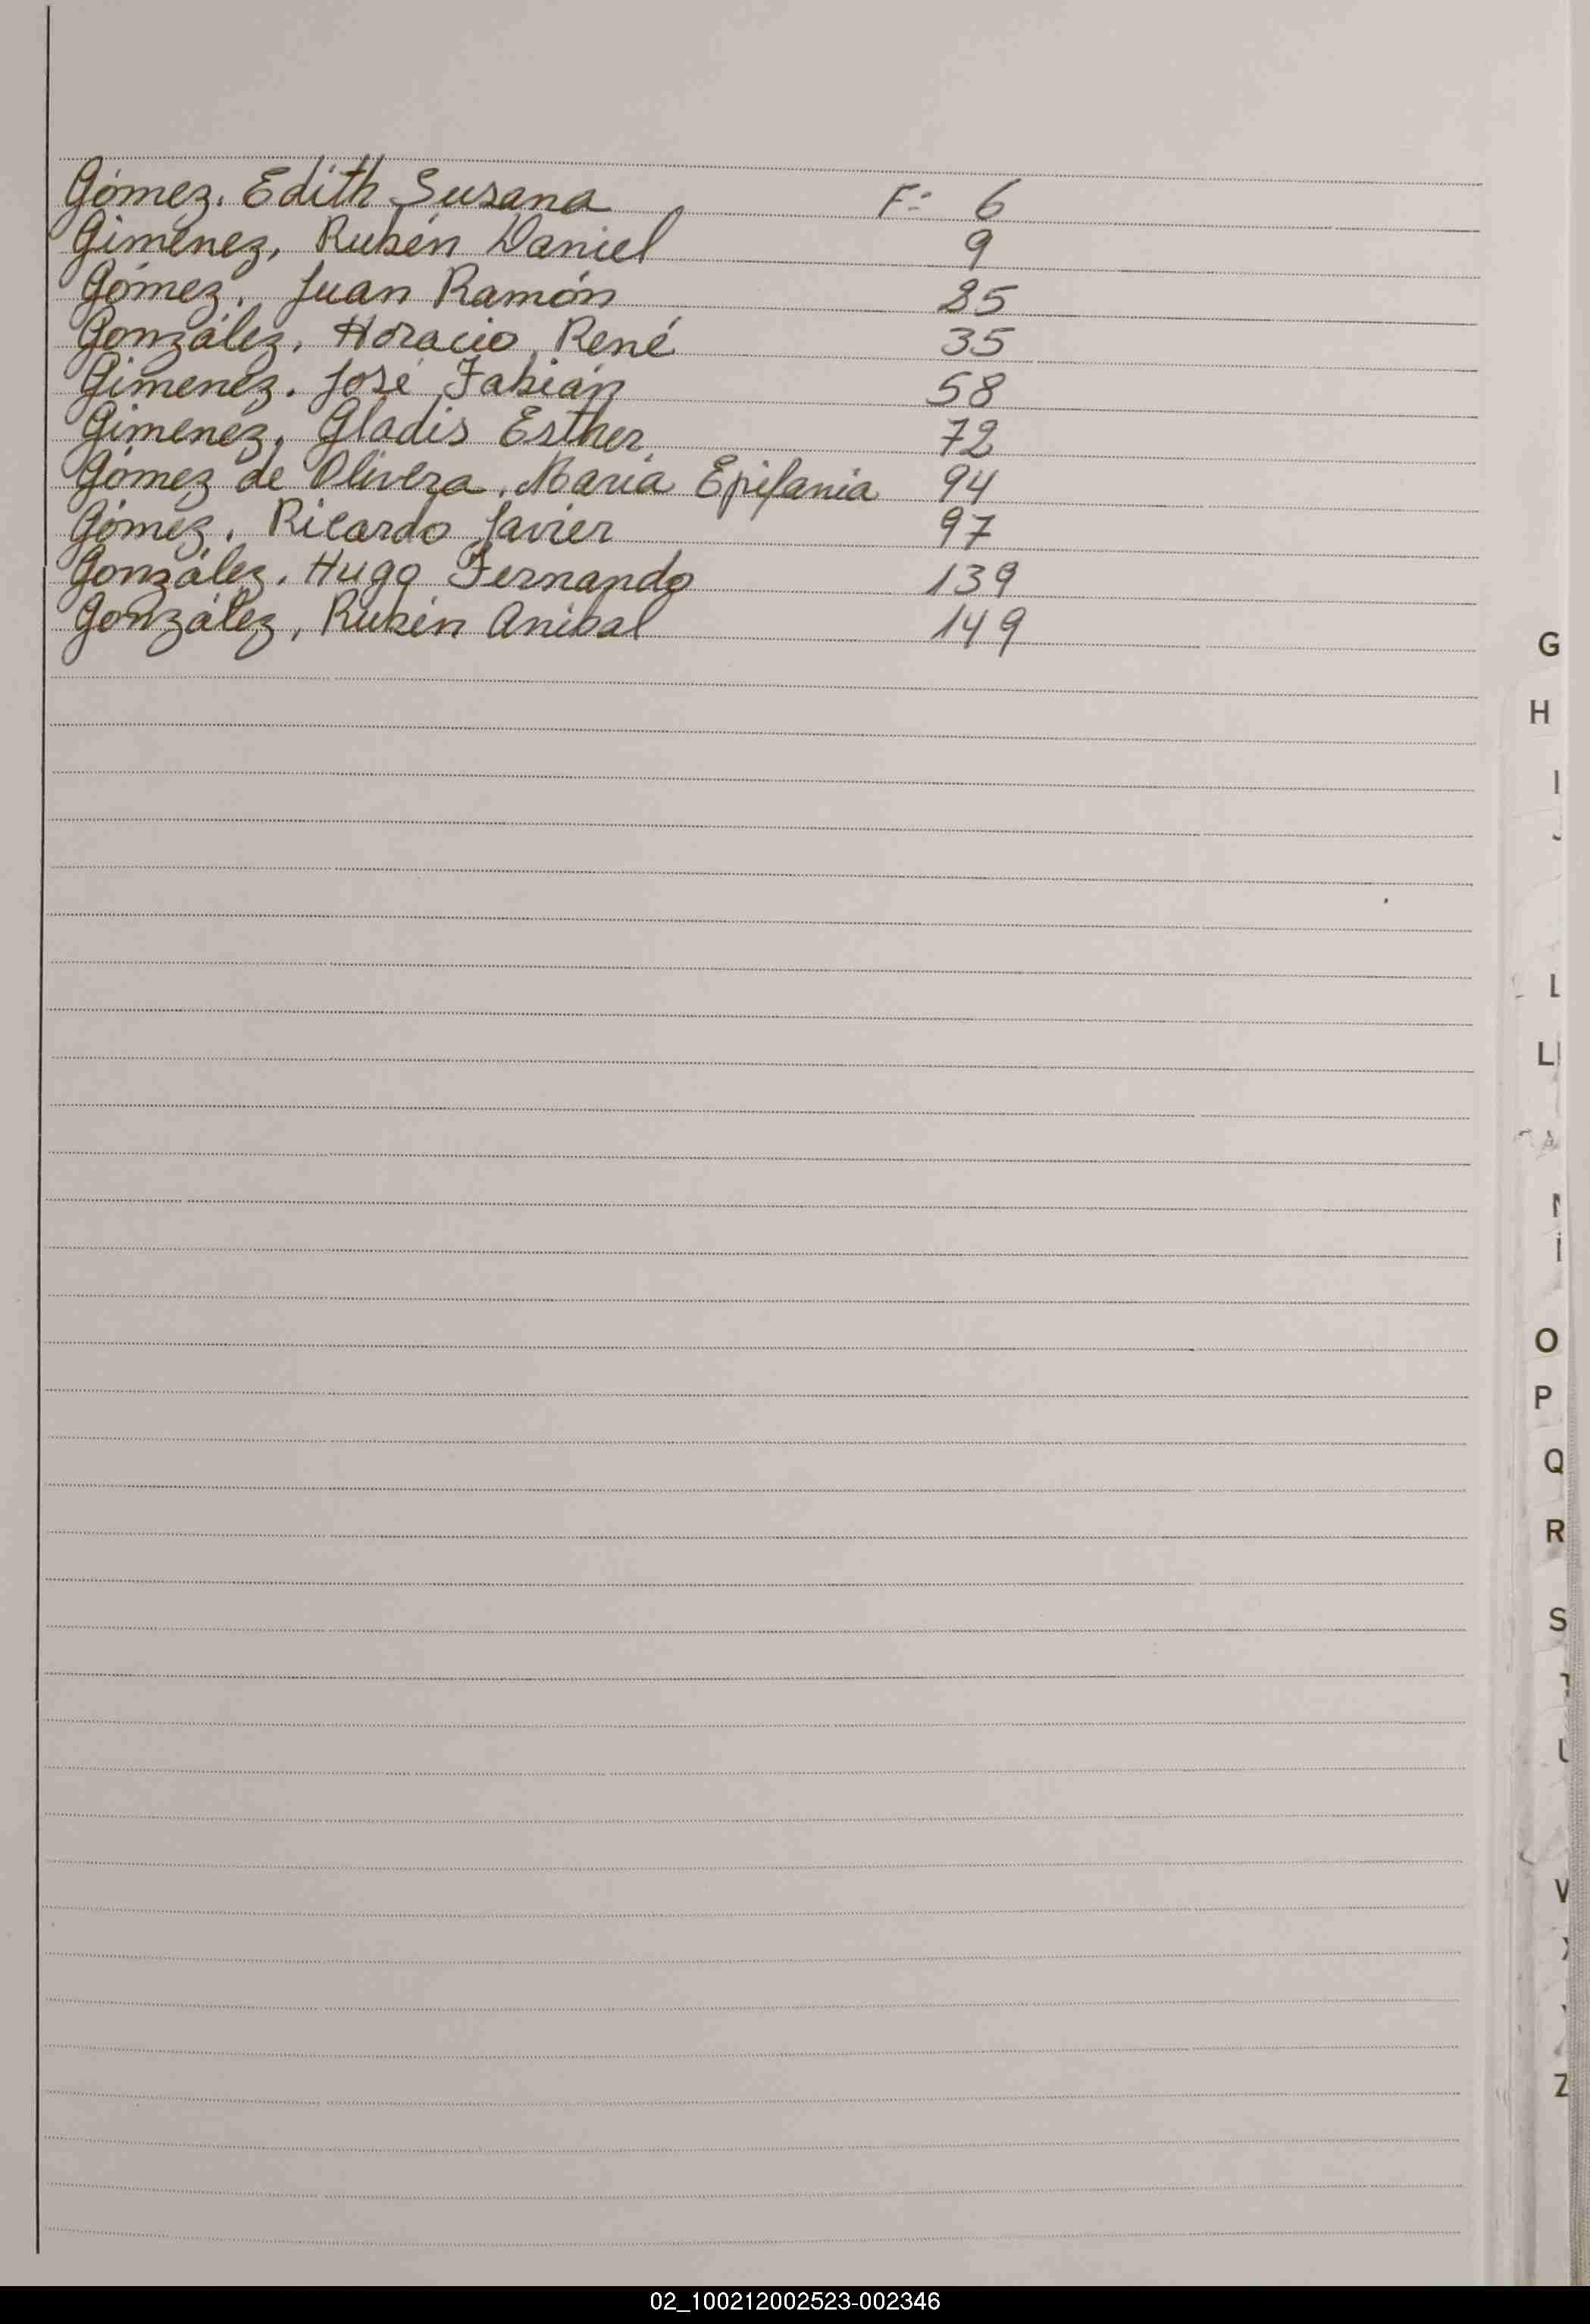 Gómez, Edith Susana F: 6
Gimenez, Rubén Daniel 9
Gómez, Juan Ramón 25
González, Horacio René 35
Gimenez, José Fabián 58
Gimenez, Gladis Esther 72
Gómez de Olivera, María Epifania 94
Gómez, Ricardo Javier 97
González, Hugo Fernando 139
González, Rubén Anibal 149
G
H
I
L
Ll
O
P
Q
R
S
T
U
Z
02_100212002523-002346